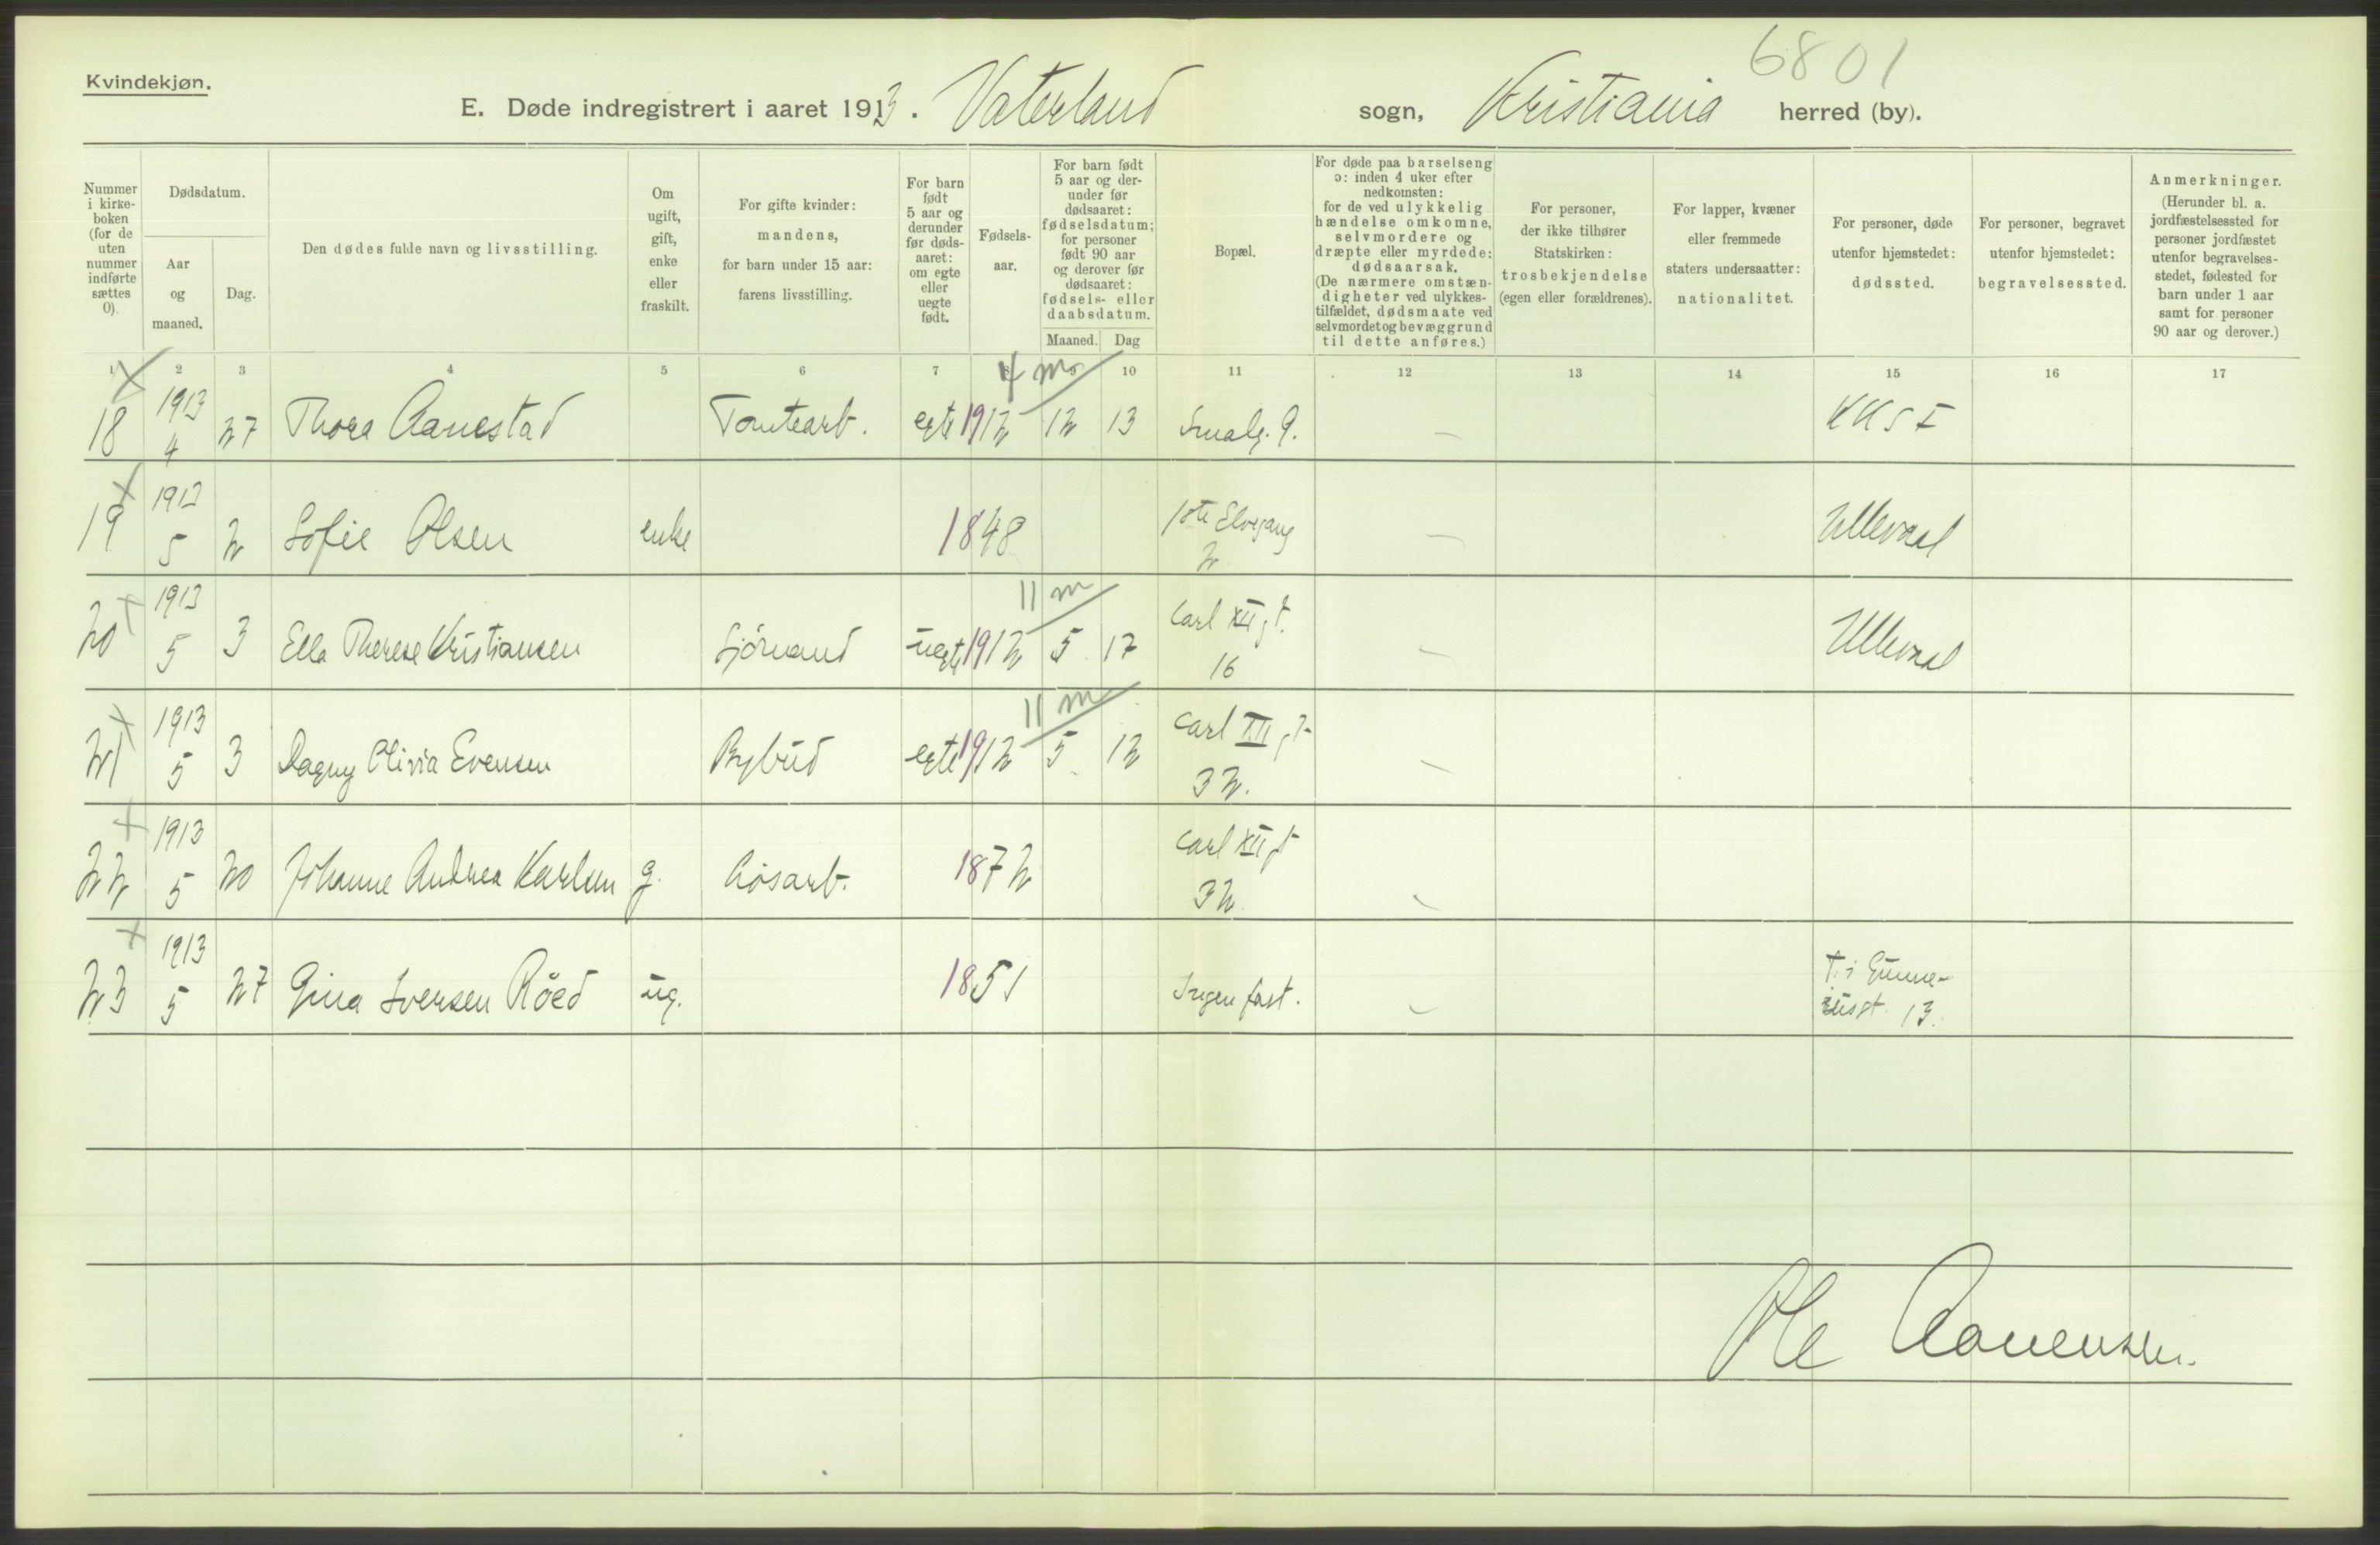 6801
Kvindekjøn.
E. Døde indregistrert i aaret 1913. Vaterland sogn, Kristiania herred (by).
Nummer i kirke- boken (for de uten nummer indførte sættes 0).
Dødsdatum.
Aar og maaned.
Dag.
Den dødes fulde navn og livsstilling.
Om ugift, gift, enke eller fraskilt.
For gifte kvinder: mandens, for barn under 15 aar: farens livsstilling.
For barn født 5 aar og derunder før døds- aaret: om egte eller uegte født.
Fødsels- aar.
For barn født 5 aar og der- under før dødsaaret: fødselsdatum; for personer født 90 aar og derover før dødsaaret: fødsels- eller daabsdatum.
Maaned. Dag
Bopæl.
For døde paa barselseng ɔ: inden 4 uker efter nedkomsten: for de ved ulykkelig hændelse omkomne, selvmordere og dræpte eller myrdede: dødsaarsak. (De nærmere omstæn- digheter ved ulykkes- tilfældet, dødsmaate ved selvmord et og bevæggrund til dette anføres.)
For personer, der ikke tilhører Statskirken: trosbekjendelse (egen eller forældrenes).
For lapper, kvæner eller fremmede staters undersaatter: nationalitet.
For personer, døde utenfor hjemstedet: dødssted.
For personer, begravet utenfor hjemstedet: begravelsessted.
Anmerkninger. (Herunder bl. a. jordfæstelsessted for personer jordfæstet utenfor begravelses- stedet, fødested for barn under 1 aar samt for personer 90 aar og derover.)
1 2 3 4 5 6 7 8 9 10 11 12 13 14 15 16 17
4 m
18 1913 4 27 Thora Aanestad Tomtearb. egte 1912 12 13 Smalg. 9. — KKSE
19 1913 5 2 Sofie Olsen enke 1848 1ste Elvegang 2 — Ullevaal
11 m
20 1913 5 3 Ella Therese Kristiansen Sjömand uegte 1912 5 17 Carl XII gt. 16 — Ullevaal
11 m
21 1913 5 3 Dagny Olivia Evensen Bybud egte 1912 5 12 Carl XII gt 32. —
22 1913 5 20 Johanne Andrea Karlsen g. Løsarb. 1872 Carl XII gt 32. —
23 1913 5 27 Gina Iversen Röed ug. 1851 Ingen fast. — 13.
Ole